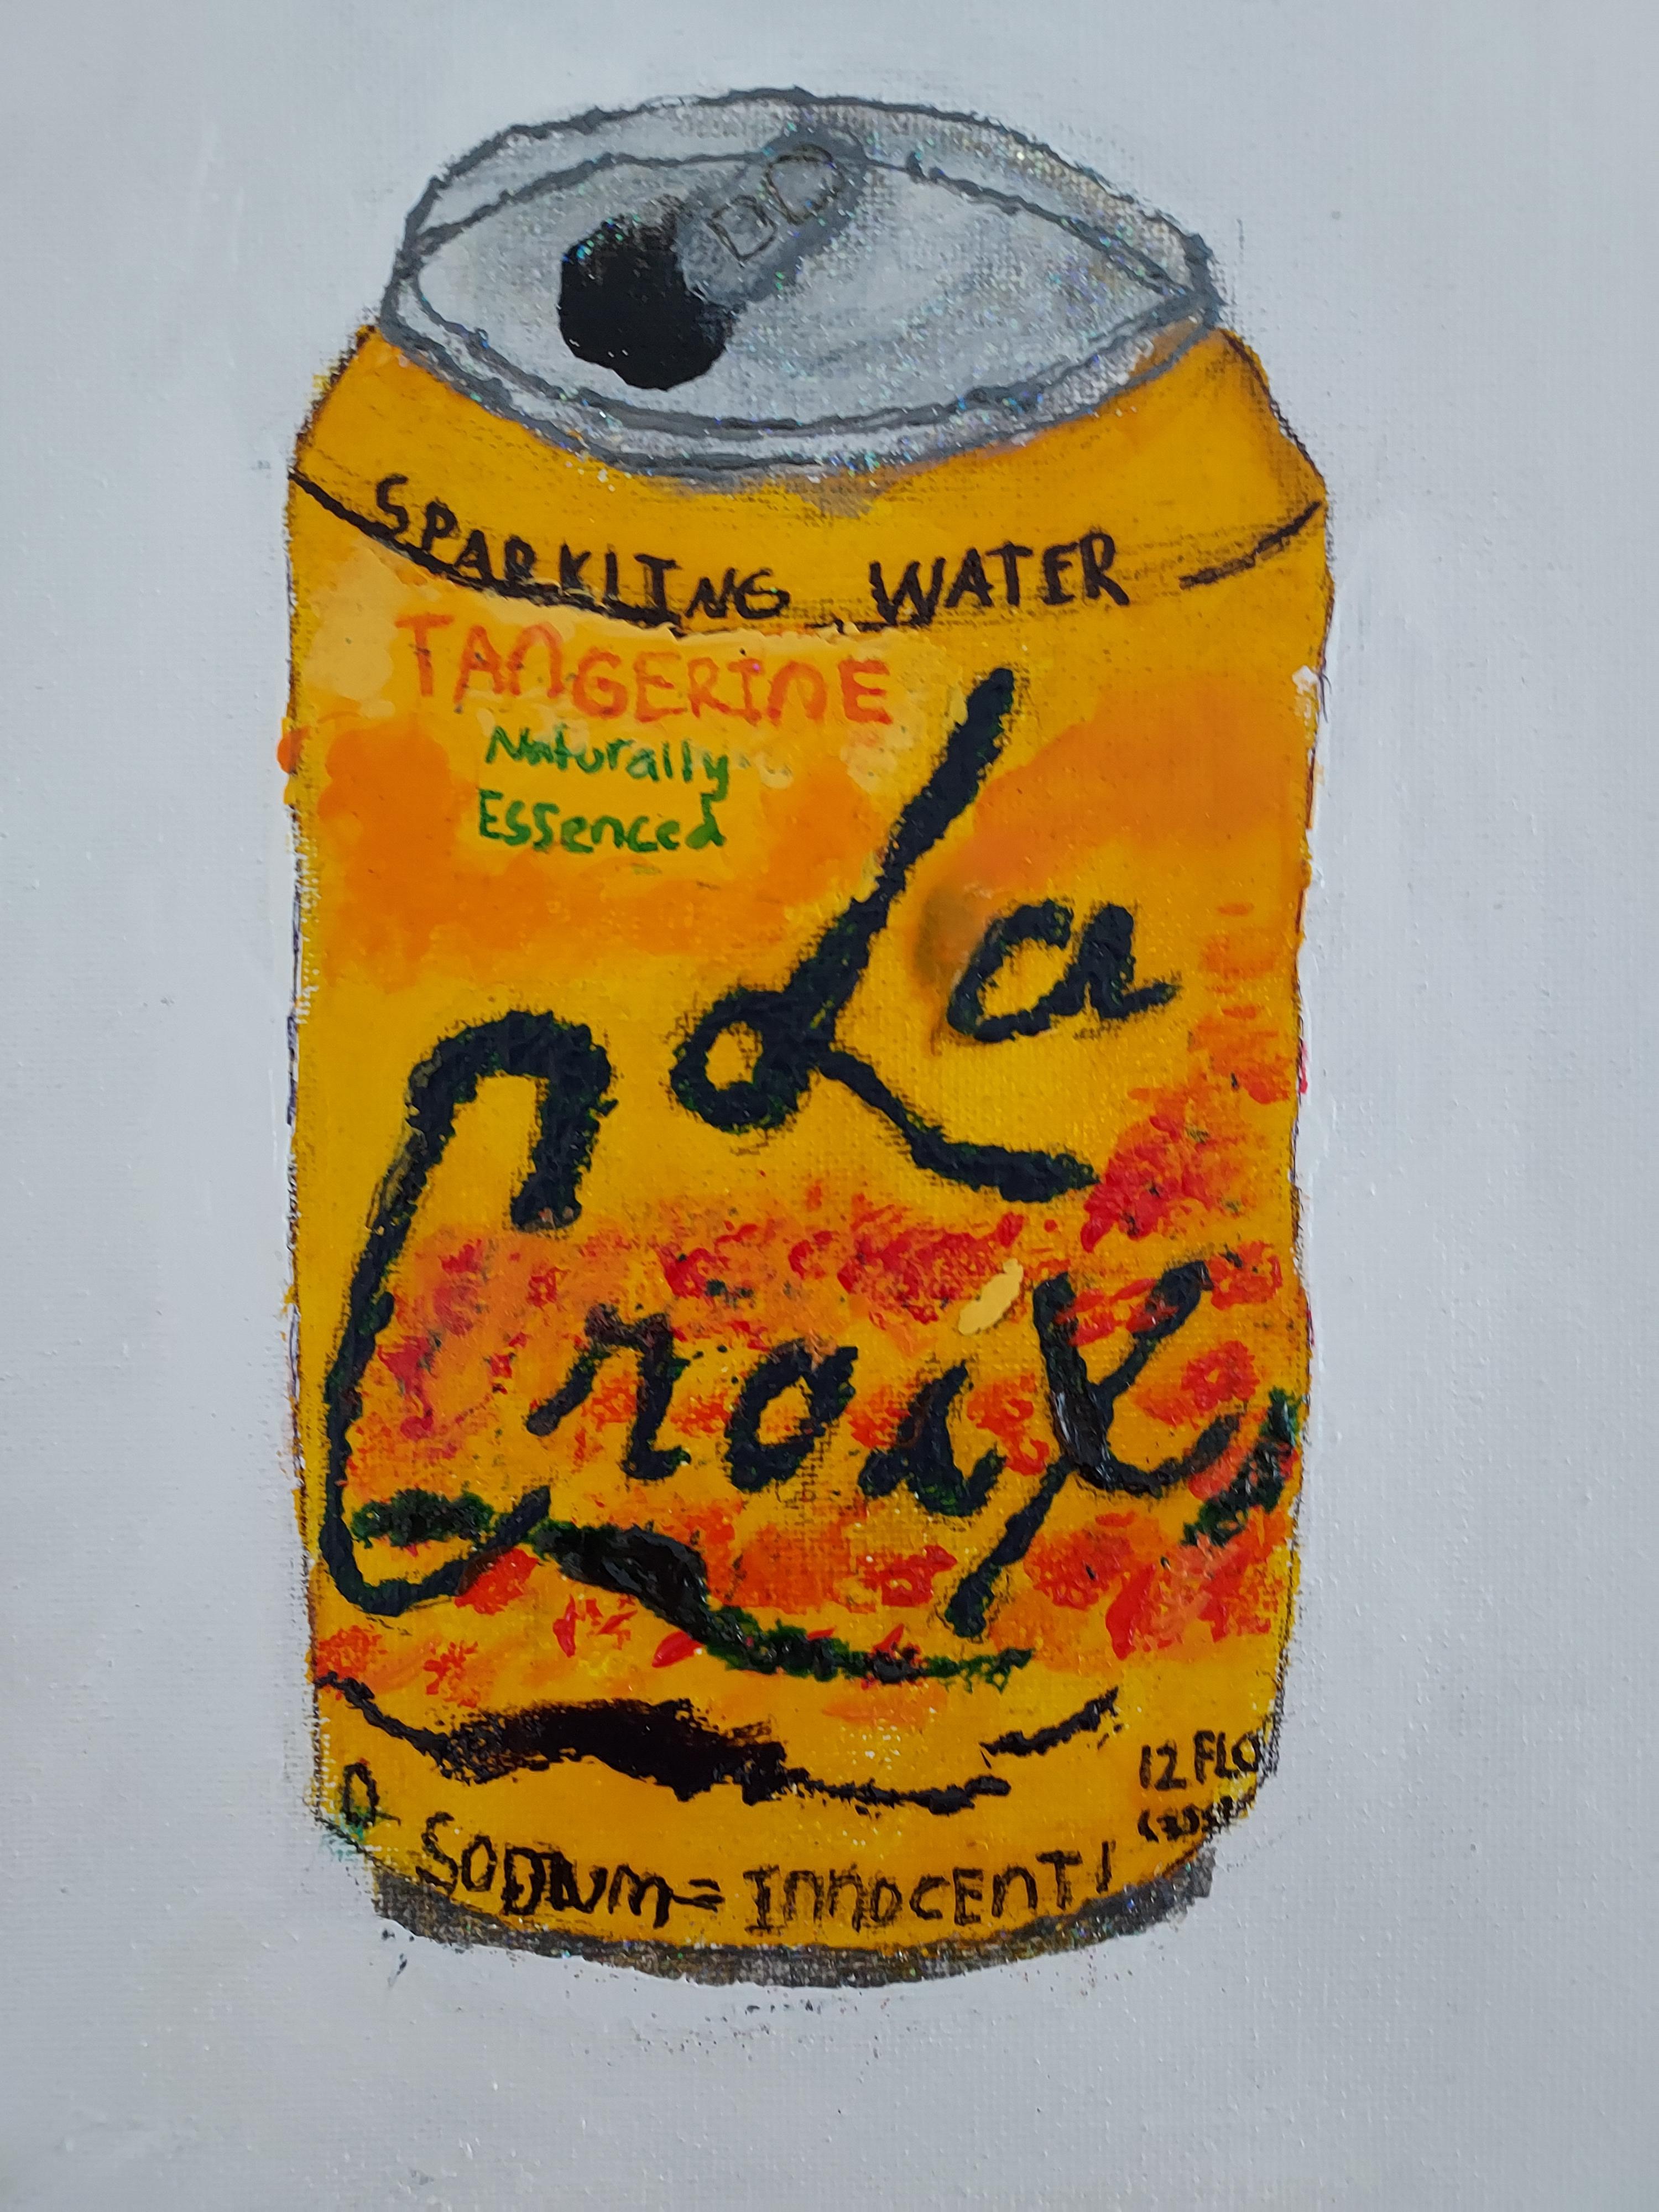 SPARKLING WATER
TANGERINE
Naturally
Essenced
La
Croix
12 FLO
0 SODIUM = INNOCENT!